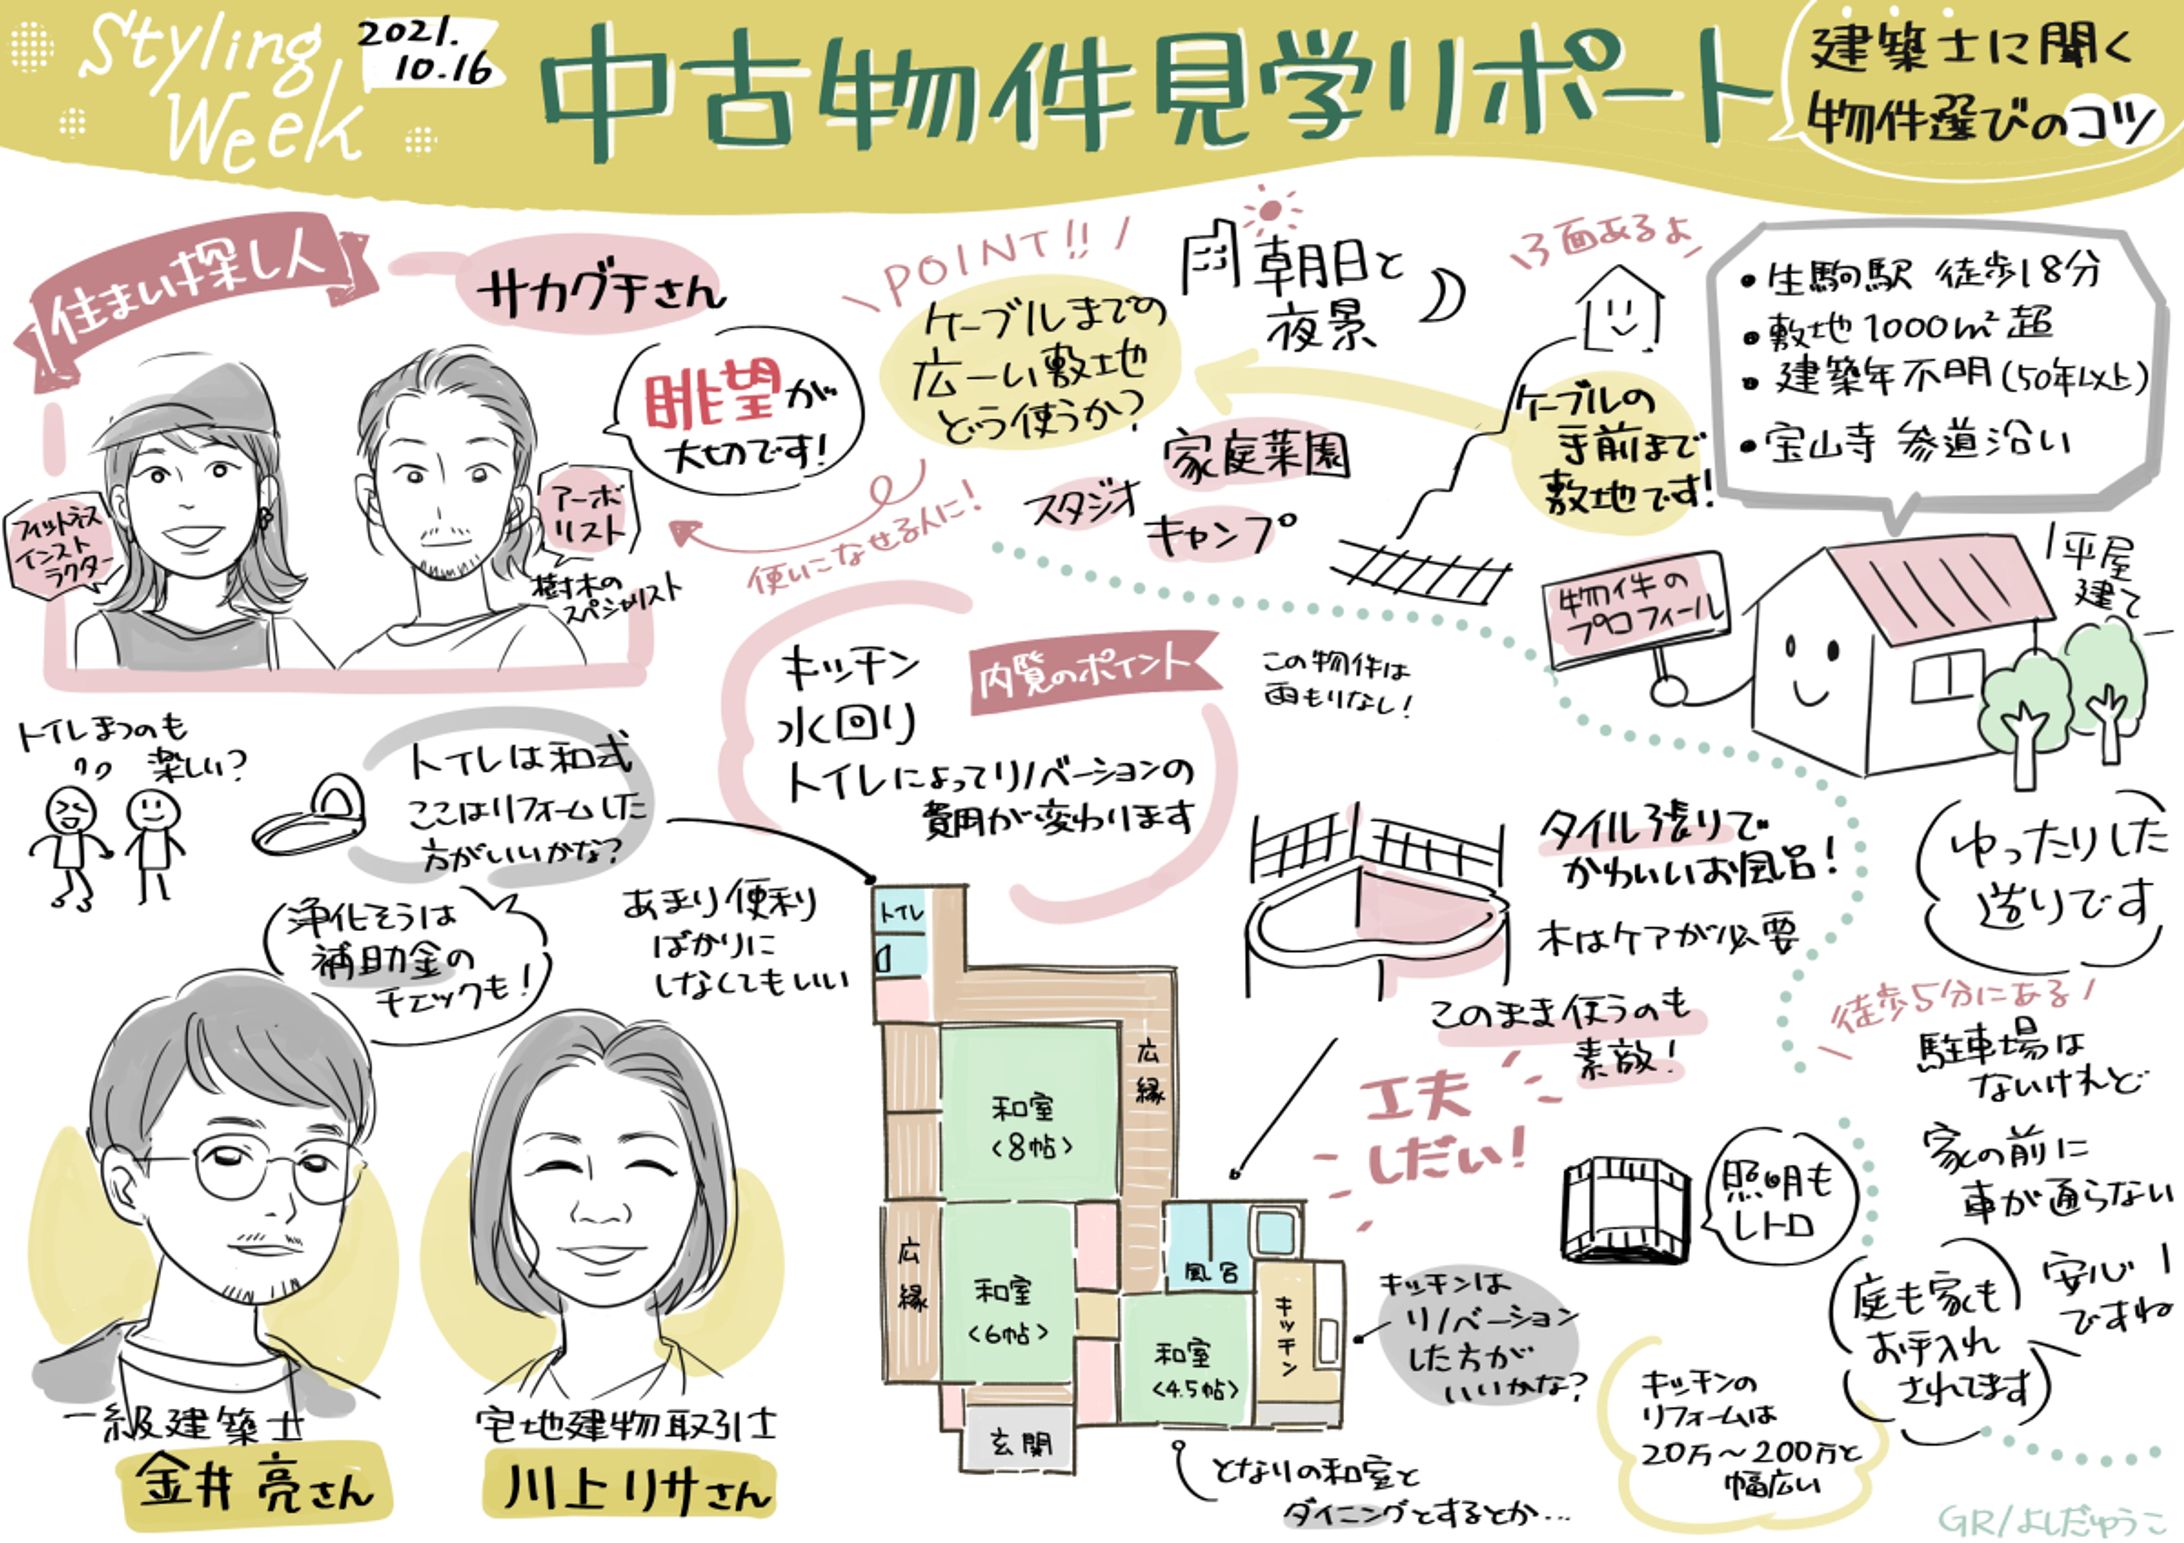 Styling
Week
2021.
10.16
中古物件見学リポート
建築士に聞く
物件選びのコツ
住まい探し人
サカグチさん
フィットネス
インスト
ラクター
アーボ
リスト
樹木の
スペシャリスト
眺望が
大切です!
POINT!!
ケーブルまでの
広ーい敷地
どう使うか?
使いこなせる人に!
朝日と
夜景
スタジオ
家庭菜園
キャンプ
3面あるよ
ケーブルの
手前まで
敷地です!
・生駒駅 徒歩18分
・敷地1000㎡超
・建築年不明(50年以上)
・宝山寺 参道沿い
物件の
プロフィール
平屋
建て
トイレまつのも
楽しい?
トイレは和式
ここはリフォームした
方がいいかな?
浄化そうは
補助金の
チェックも!
あまり便利
ばかりに
しなくてもいい
内覧のポイント
キッチン
水回り
トイレによってリノベーションの
費用が変わります
この物件は
雨もりなし!
タイル張りで
かわいいお風呂!
木はケアが必要
このまま使うのも
素敵!
工夫
しだい!
照明も
レトロ
ゆったりした
造りです
徒歩5分にある
駐車場は
ないけれど
家の前に
車が通らない
安心
ですね
庭も家も
お手入れ
されてます
トイレ
広縁
和室
<8帖>
広縁
和室
<6帖>
風呂
キッチン
和室
<4.5帖>
玄関
キッチンは
リノベーション
した方が
いいかな?
となりの和室と
ダイニングとするとか…
キッチンの
リフォームは
20万〜200万と
幅広い
一級建築士
金井 亮さん
宅地建物取引士
川上リサさん
GR/よしだゆうこ